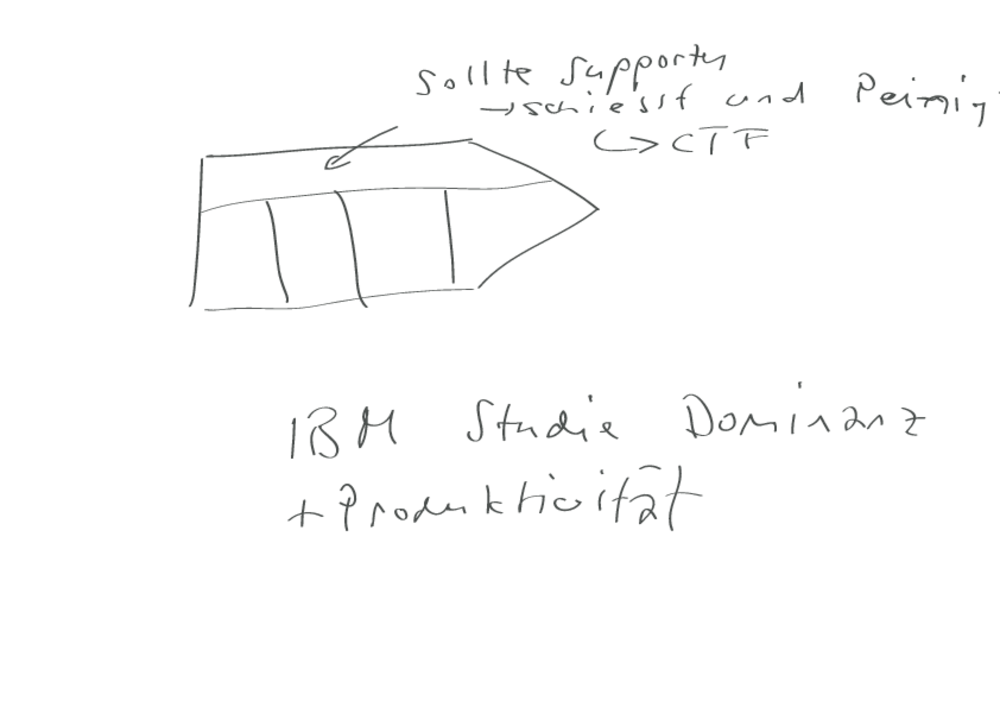 Sollte supporten
→ schiesst und
↳ CTF
IBM Studie Dominanz
+ Produktivität